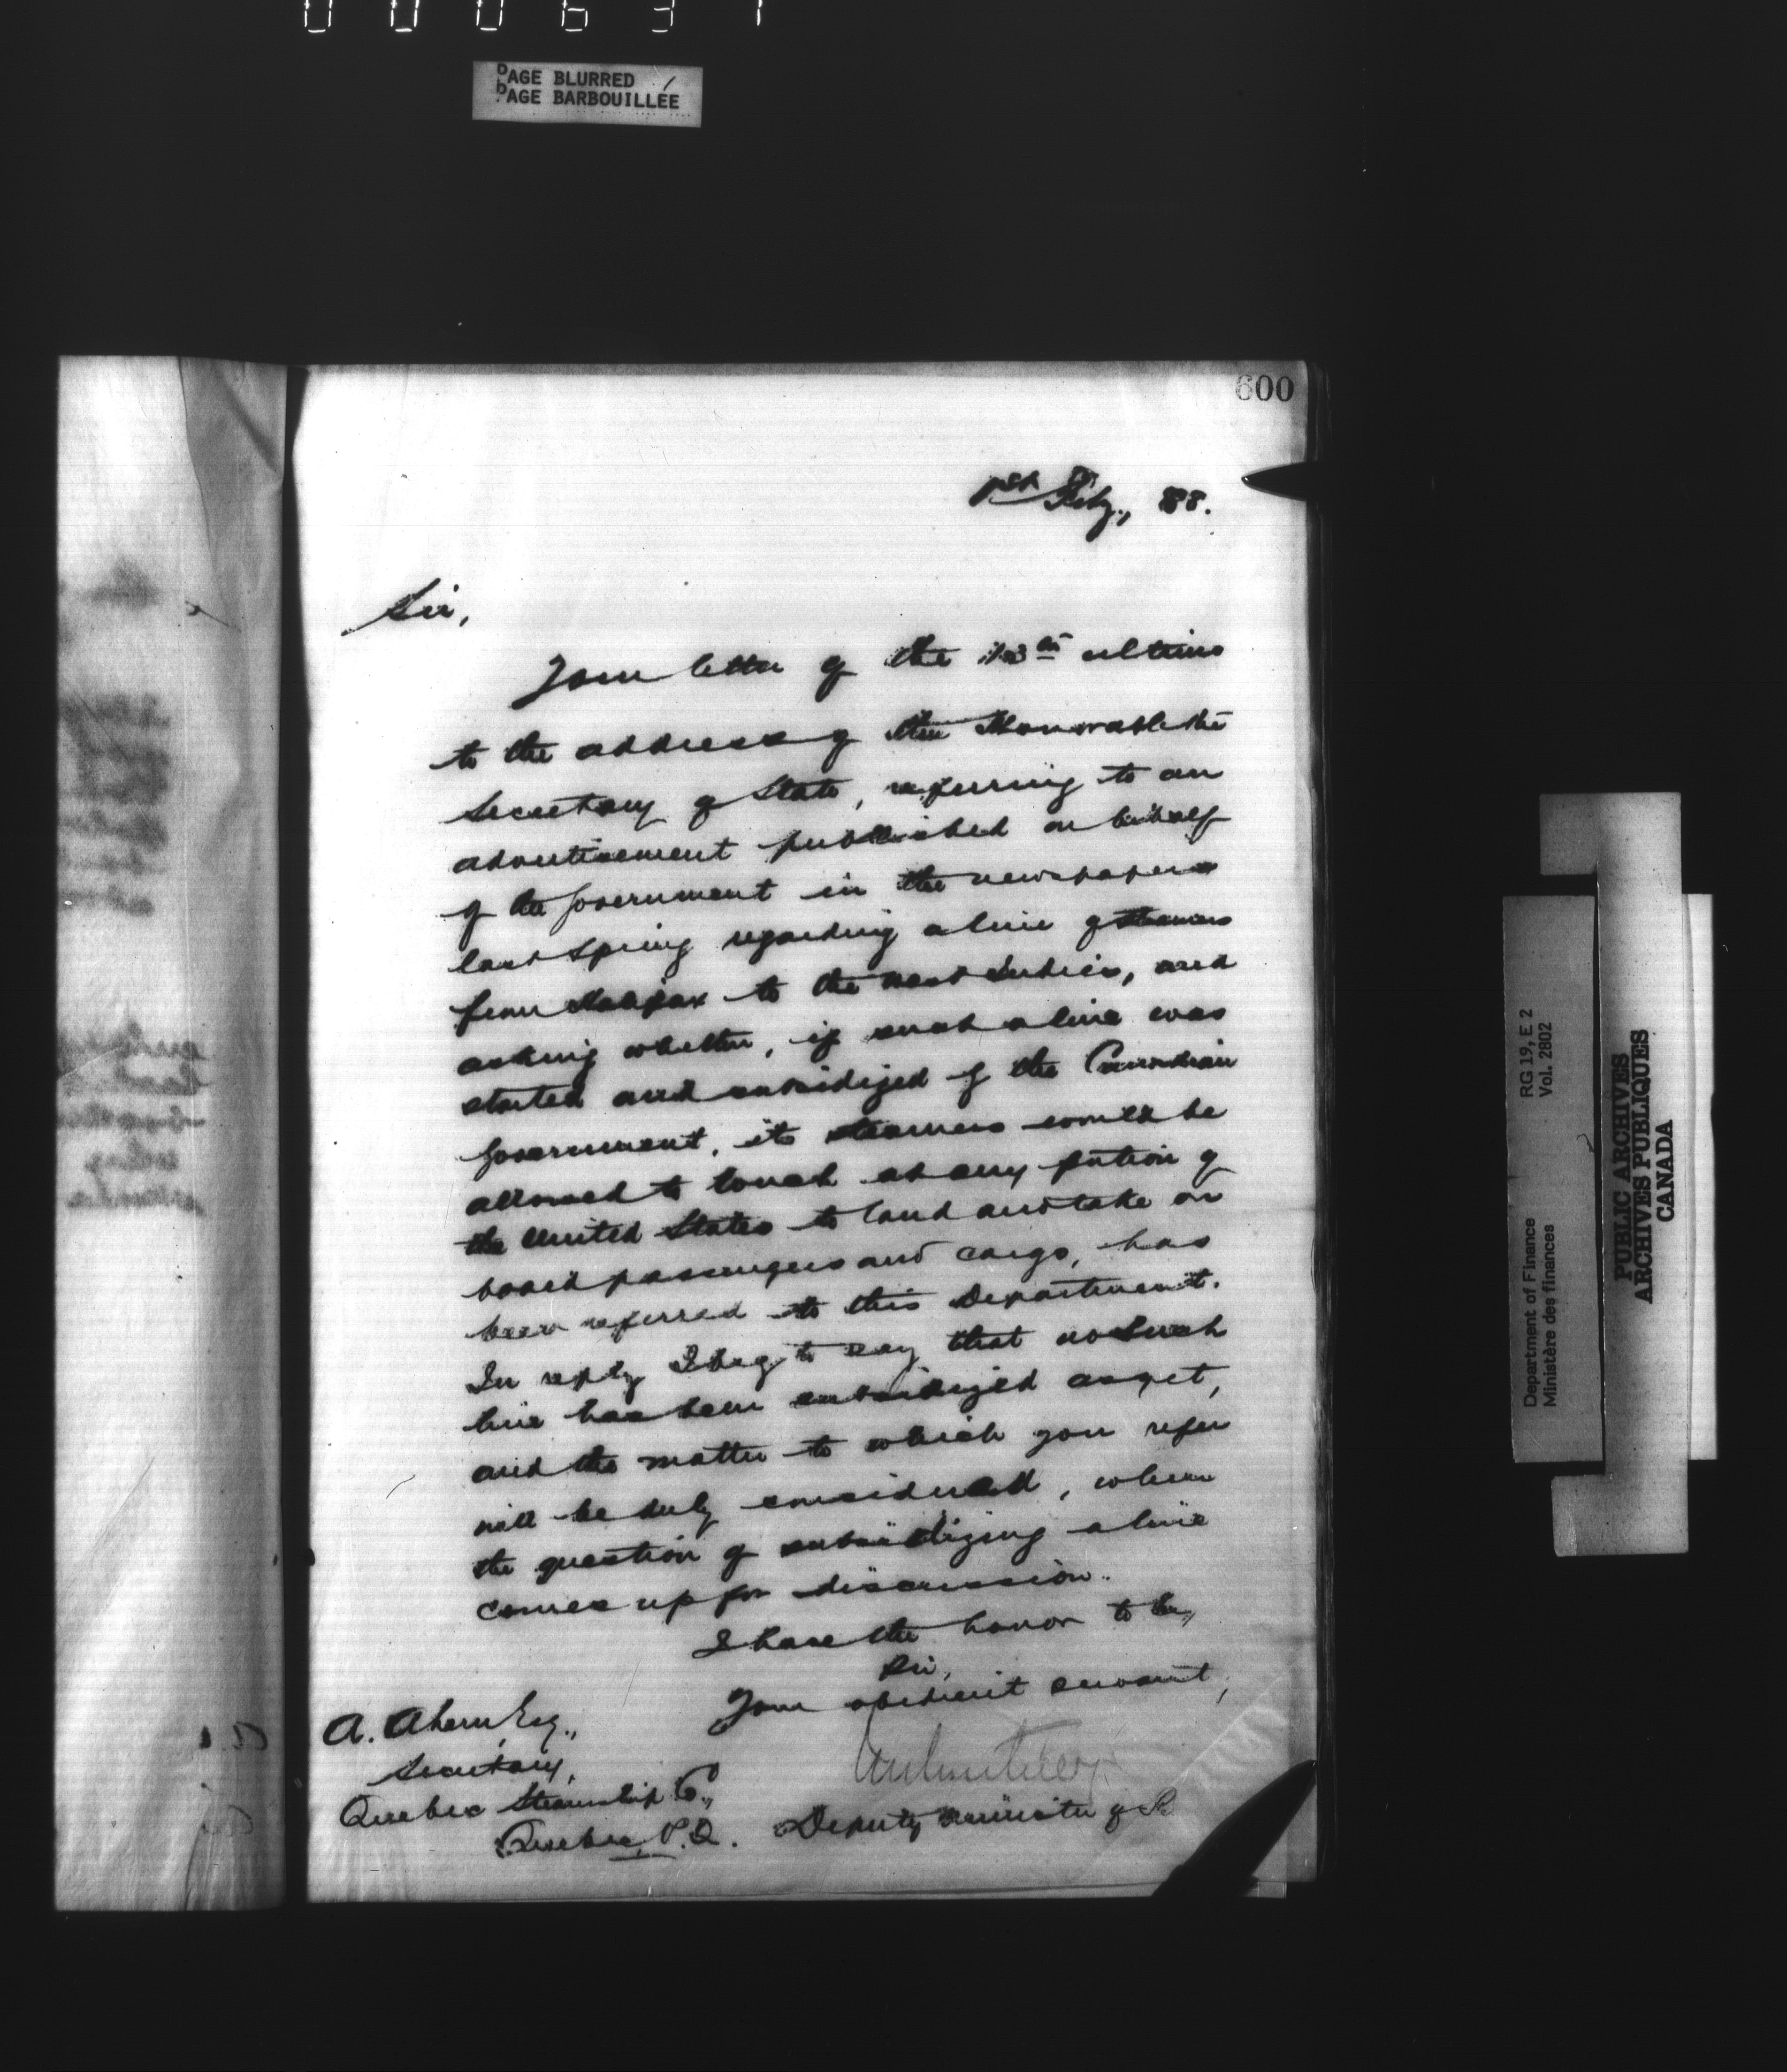 PAGE BLURRED
PAGE BARBOUILLÉE
600
1st Feby., 88.
Sir,
Your letter of the 13th ultimo
to the address of the Honorable the
Secretary of State, referring to an
advertisement published on behalf
of the Government in the newspapers
last Spring regarding a line of steamers
from Halifax to the West Indies, and
asking whether, if such a line was
started and subsidized by the Canadian
Government, its steamers would be
allowed to touch at any portion of
the United States to land and take on
board passengers and cargo, has
been referred to this Department.
In reply I beg to say that no such
line has been subsidized as yet,
and the matter to which you refer
will be duly considered, when
the question of subsidizing a line
comes up for discussion.
I have the honor to be,
Sir,
Your obedient servant,
A. Ahern, Esq.,
Secretary,
Quebec Steamship Co.,
Quebec, P.Q.
Deputy Minister of
Department of Finance RG 19, E 2
Ministère des finances Vol. 2802
PUBLIC ARCHIVES
ARCHIVES PUBLIQUES
CANADA